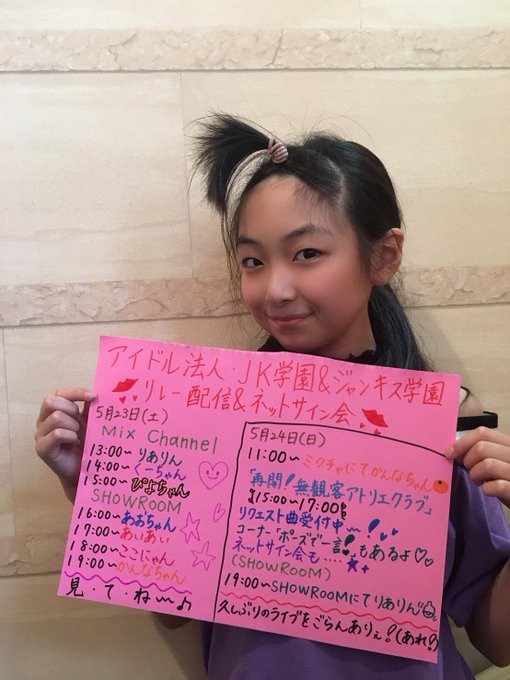 アイドル法人 JK学園&ジャンキス学園
リレー配信&ネットサイン会
5月23日(土)
Mix Channel
13:00~りありん
14:00~くーちゃん
15:00~ぴよちゃん
SHOWROOM
16:00~あおちゃん
17:00~あぃあぃ
18:00~ここにゃん
19:00~かんなちゃん
見・て・ね〜♪
5月24日(日)
11:00~ミクチャにてかんなちゃん
「再開!無観客アトリエクラブ」
15:00~17:00
リクエスト曲受付中〜!
コーナー「ポーズで一言」もあるよ♡
ネットサイン会も....
(SHOWROOM)
19:00~SHOWROOMにてりありん
久しぶりのライブをごらんありぇ?(あれ?)